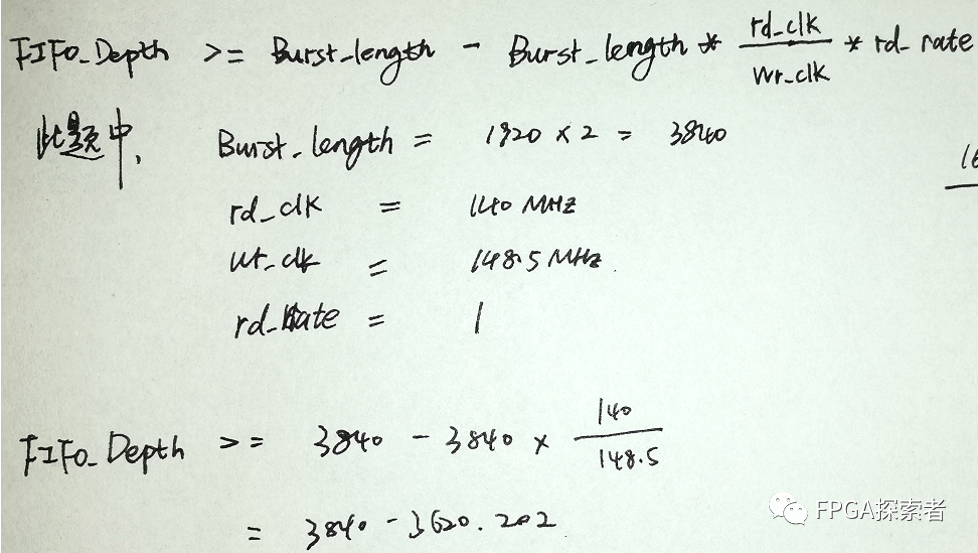 FIFO_Depth >= Burst_length - Burst_length * rd_clk / wr_clk * rd_rate
此题中, Burst_length = 1920 × 2 = 3840
rd_clk = 140 MHz
wr_clk = 148.5 MHz
rd_rate = 1
FIFO_Depth >= 3840 - 3840 × 140 / 148.5
= 3840 - 3620.202
FPGA探索者